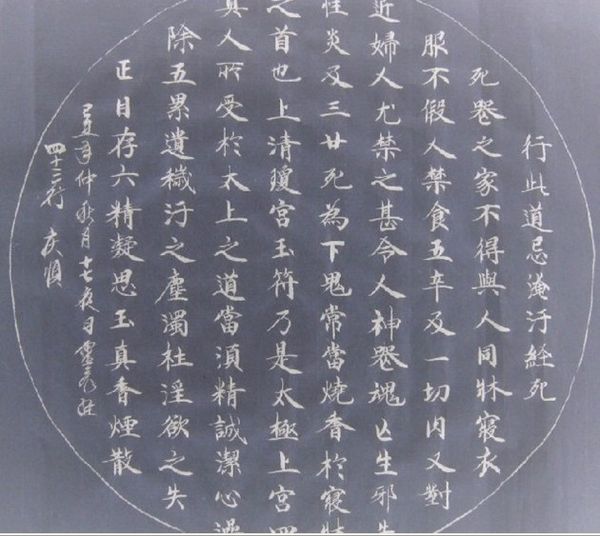 行此道忌淹汙經死
死喪之家不得與人同牀寢衣
服不假人禁食五辛及一切肉又對
近婦人尤禁之甚令人神喪魂亡生邪失
性災及三世死為下鬼常當燒香於寢牀
之首也上清瓊宮玉符乃是太極上宮四
真人所受於太上之道當須精誠潔心澡
除五累遺穢汙之塵濁杜淫欲之失
正目存六精凝思玉真香煙散
仲秋月十七夜
四十三行